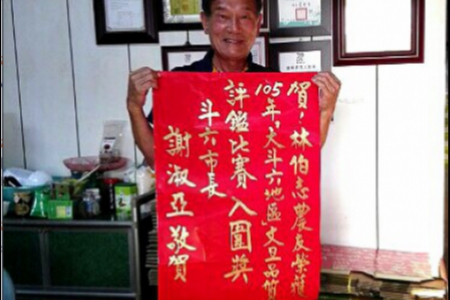 賀！林伯志農友榮獲
105年，大斗六地區文旦品質
評鑑比賽入圍獎
斗六市長
謝淑亞敬賀